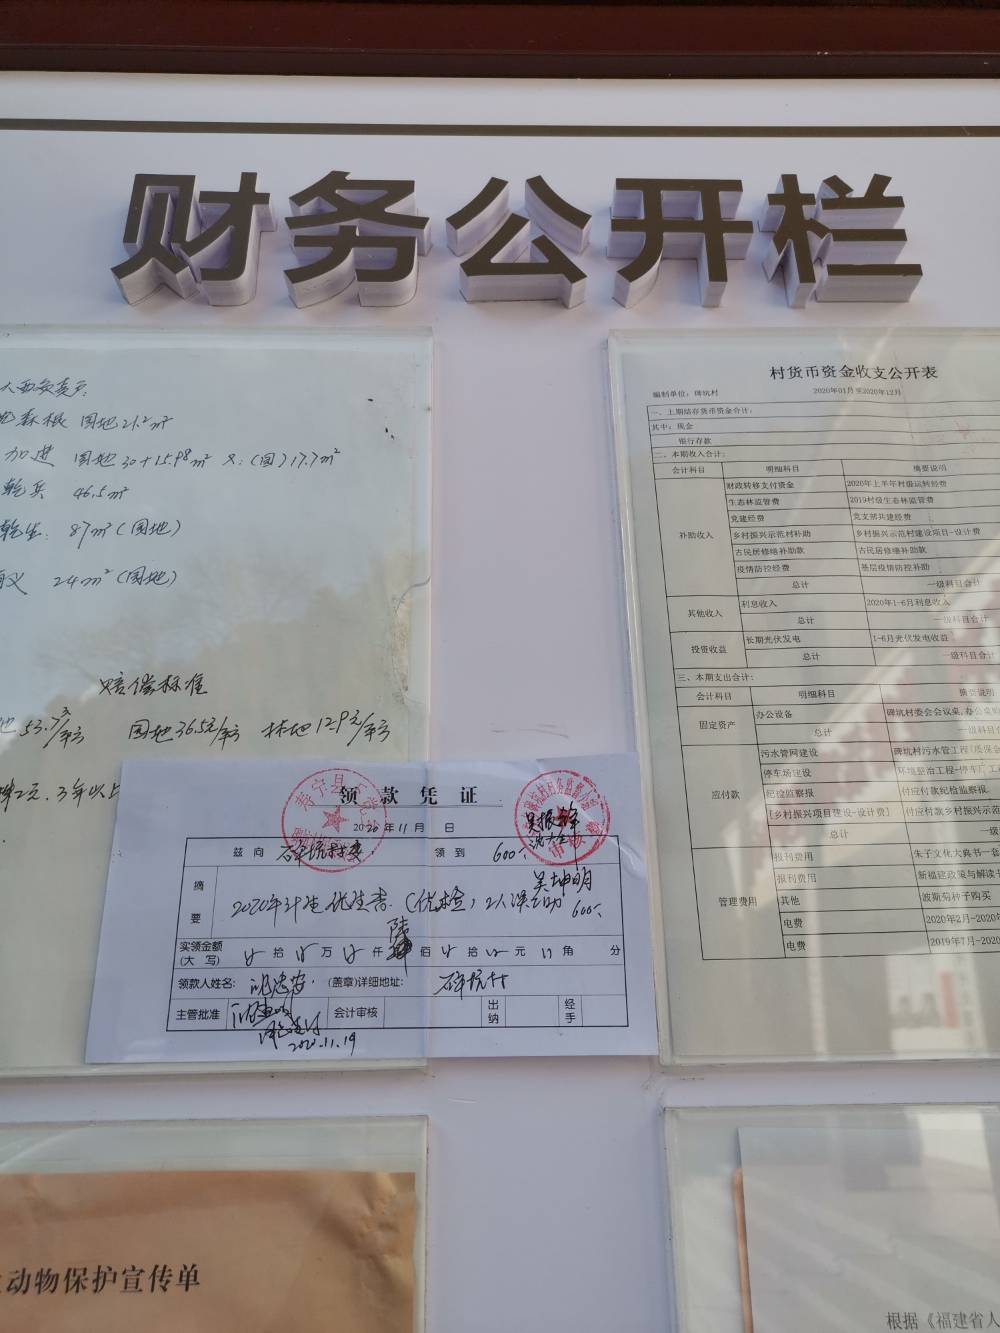 财务公开栏
森根 园地21.2m²
加进 园地30+15.98m² 又:(园)17.7m²
乾兵 46.5m²
乾生: 87m²(园地)
义 24m²(园地)
赔偿标准
园地36.5元/平方 林地12.9元/平方
3年以上
村货币资金收支公开表
编制单位: 碑坑村 2020年01月至2020年12月
一、上期结存货币资金合计:
其中: 现金
银行存款
二、本期收入合计:
会计科目 明细科目 摘要说明
补助收入
财政转移支付资金 2020年上半年村级运转经费
生态林监管费 2019村级生态林监管费
党建经费 党支部共建经费
乡村振兴示范村补助 乡村振兴示范村建设项目-设计费
古民居修缮补助款 古民居修缮补助款
疫情防控经费 基层疫情防控补助
总计 一级科目合计
其他收入
利息收入 2020年1-6月利息收入
总计 一级科目合计
投资收益
长期光伏发电 1-6月光伏发电收益
总计 一级科目合计
三、本期支出合计:
会计科目 明细科目 摘要说明
固定资产
办公设备 碑坑村委会会议桌,办公桌
总计 一级科目
应付款
污水管网建设 碑坑村污水管工程(质保金
停车场建设 环境整治工程-停车
纪检监察报 付应付款纪检监察报.
[乡村振兴项目建设-设计费] 付应付款乡村振兴示
总计 一级
管理费用
报刊费用 朱子文化大典书一套
报刊费用 新福建政策与解读书
其他 波斯菊种子购买
电费 2020年2月-2020年
电费 2019年7月-2020
领款凭证
2020年11月 日
兹向 碑坑村委 领到 600
吴振锋
吴坤明
摘要 2020年计生优生
(优检)2人误工助 600
实领金额(大写) 拾 万 仟 陆 佰 拾 元 角 分
领款人姓名: (盖章)详细地址: 碑坑村
主管批准 会计审核 出纳 经手
2020.11.19
动物保护宣传单
根据《福建省人